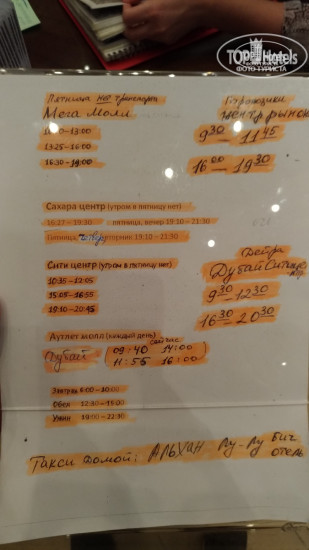 TOPHotels
ФОТО ТУРИСТА
Пятница нет транспорта
Мега Молл
10:00-13:00
13:25-16:00
16:30-19:00
Городской
центр рынок
9 30 - 11 45
16 00 - 19 30
Сахара центр (утром в пятницу нет)
16:27 - 19:30 - пятница, вечер 19:10 - 21:30
Пятница 19:10 - 21:30
Сити центр (утром в пятницу нет)
10:35 - 12:05
15:05 - 16:55
19:10 - 20:45
Дейра
Дубай Сити
9 30 - 12 30
16 30 - 20 30
Аутлет молл (каждый день)
Дубай
09:40 14:00
11:55 16:00
Завтрак 6:00 - 10:00
Обед 12:30 - 15:00
Ужин 19:00 - 22:30
Такси домой: Альхан Лу-Лу биг
отель